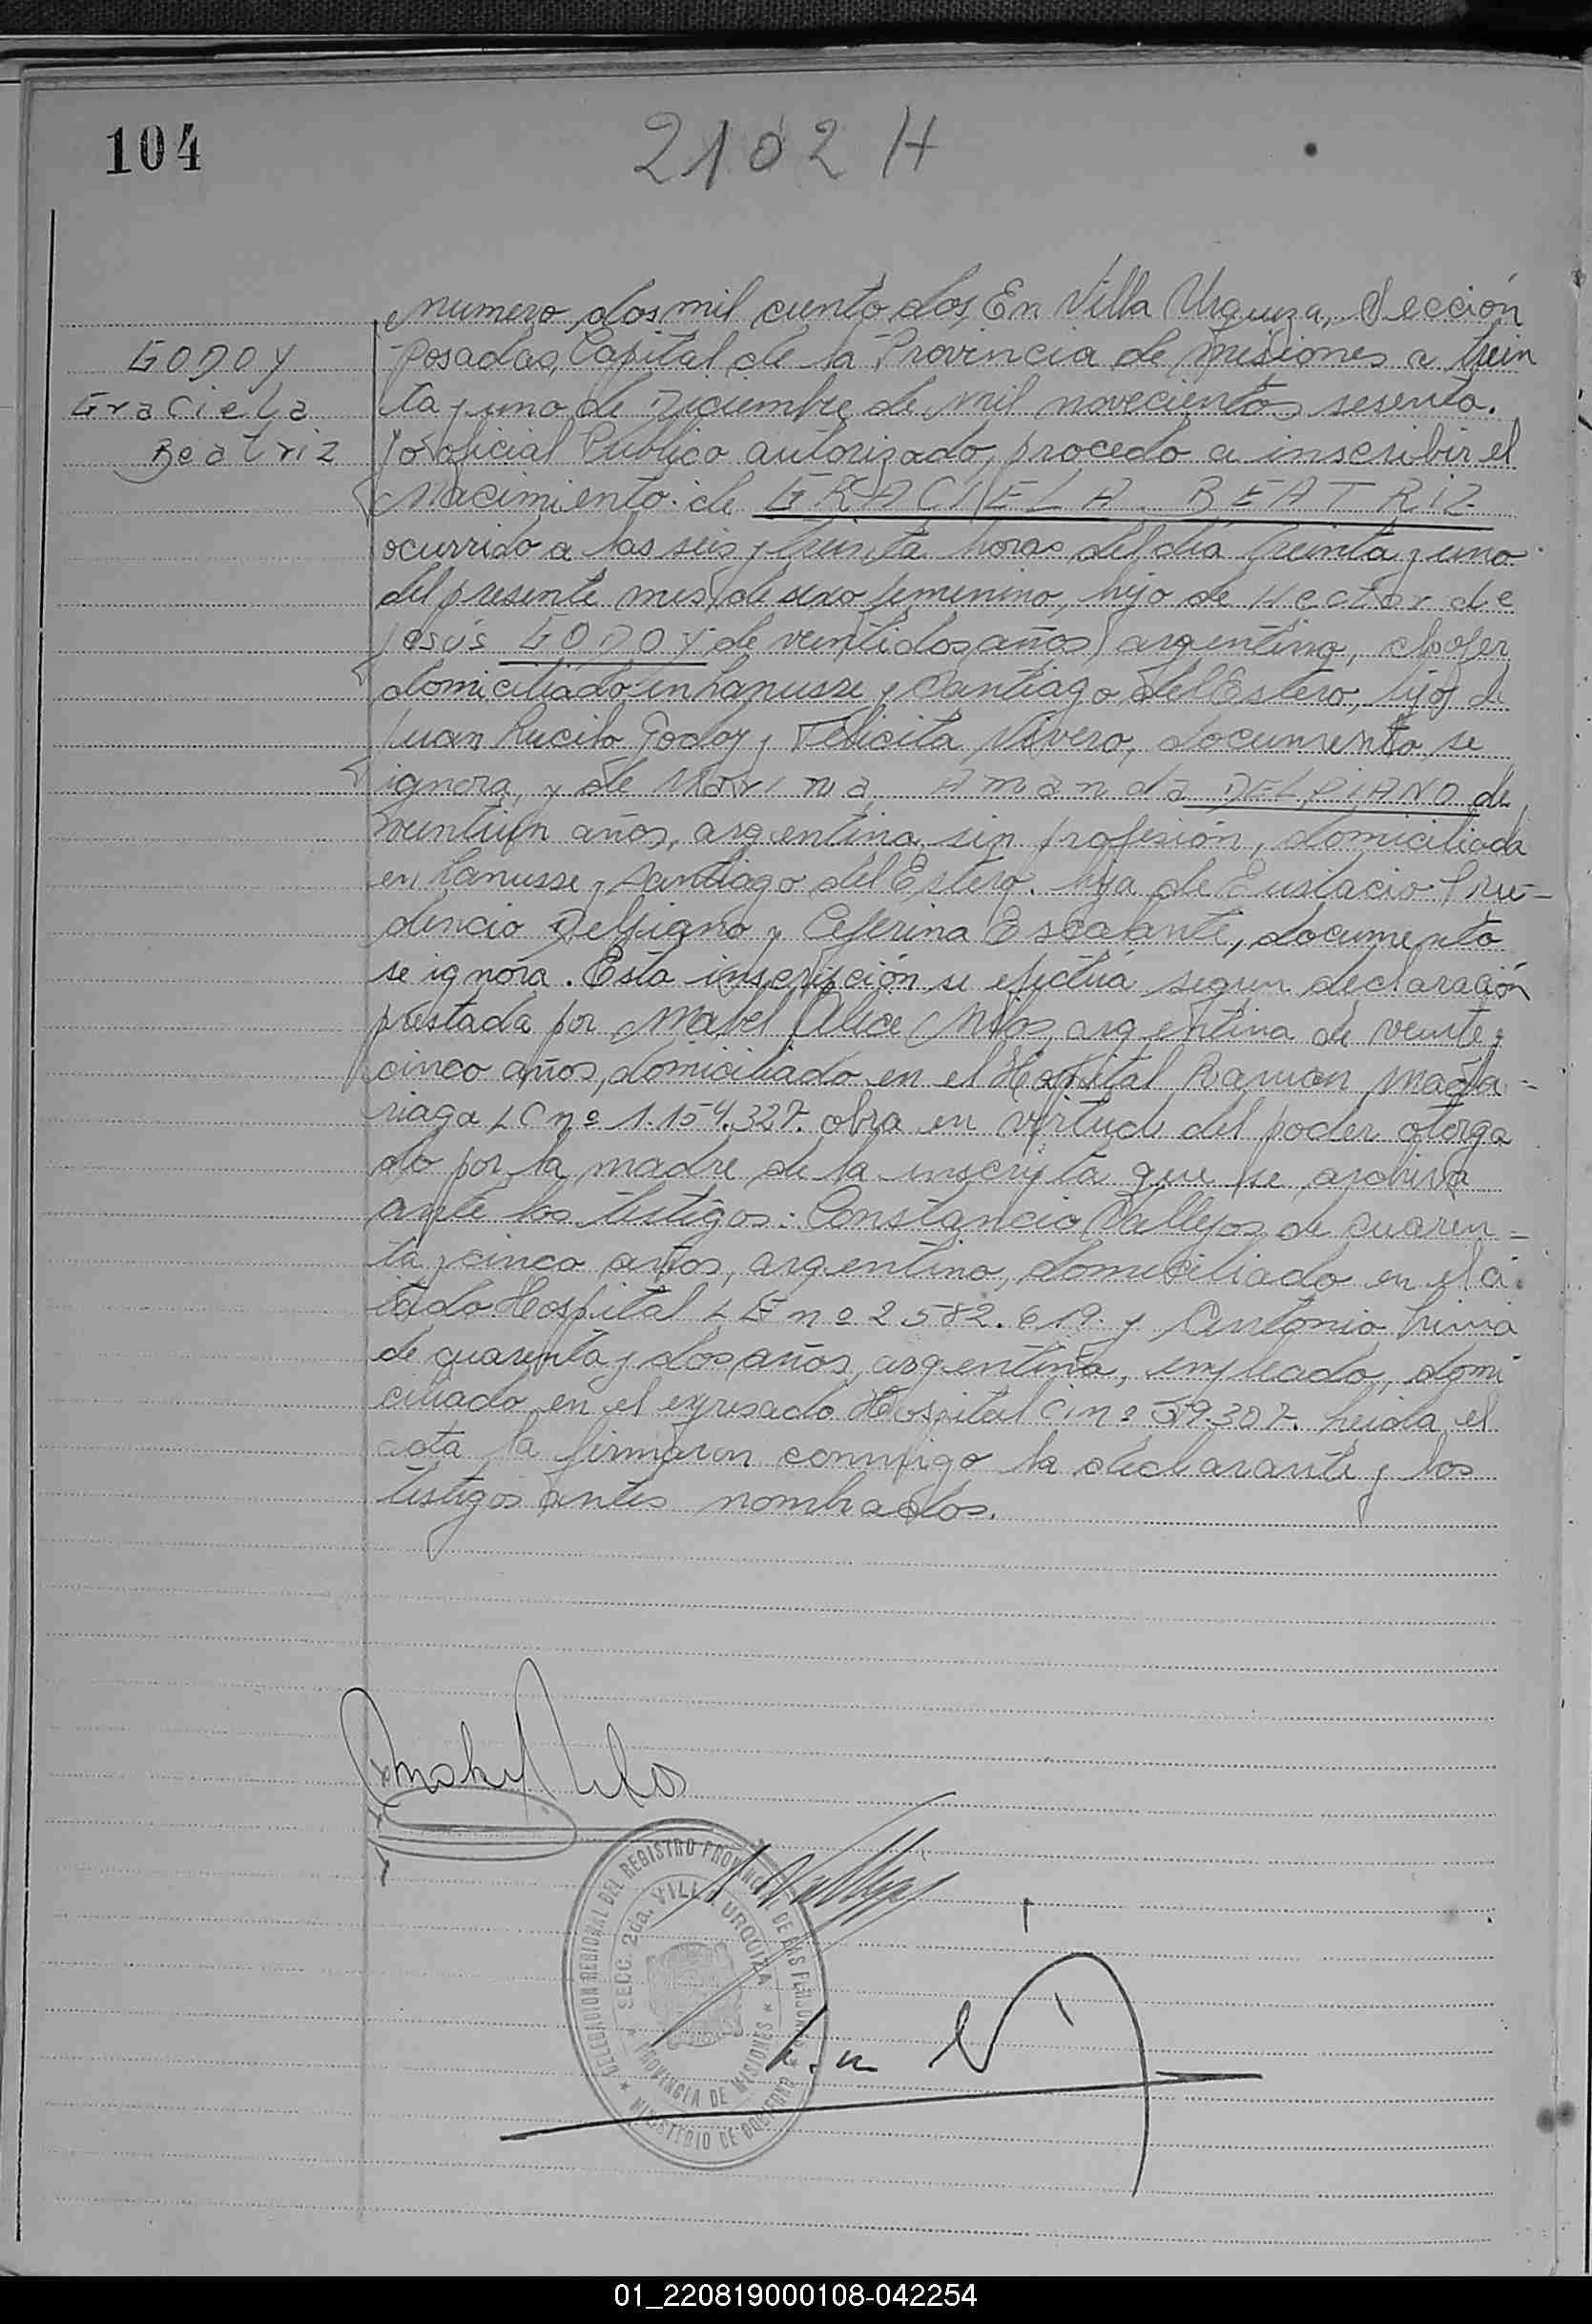 104
2102 H
Numero dos mil ciento dos, En Villa Urquiza, Sección
GODOY
Posadas, Capital de la Provincia de Misiones a trein
Graciela
ta y uno de Diciembre de mil novecientos sesenta.
Beatriz
Yo oficial Publico autorizado, procedo a inscribir el
Nacimiento de GRACIELA BEATRIZ
ocurrido a las seis y treinta horas del dia treinta y uno
del presente mes, de sexo femenino, hijo de Hector de
Jesús GODOY de veintidos años, argentino, chofer
domiciliado en Lanusse y Santiago del Estero, hijo de
Juan Lucilo Godoy y Felicita Vivero, documento se
ignora, y de Marina Amanda DELPIANO de
veintiun años, argentina, sin profesión, domiciliada
en Lanusse y Santiago del Estero. hija de Eustacio Pru-
dencio Delpiano y Ceferina Escalante, documento
se ignora. Esta inscripción se efectúa segun declaración
prestada por Mabel Alice Milos, argentina de veinte y
cinco años, domiciliado en el Hospital Ramon Mada-
riaga LC nº 1.154.327. obra en virtud del poder otorga
do por la madre de la inscripta que se archiva
ante los testigos: Constancio Vallejos de cuaren-
ta y cinco años, argentino, domiciliado en el ci
tado Hospital LE nº 2582.619. y Antonio
de quarenta y dos años, argentino, empleado, domi
ciliado en el expresado Hospital Ci nº 59.307. Leida el
acta la firmaron conmigo la declarante y los
testigos antes nombrados.
DELEGACION REGIONAL DEL REGISTRO PROVINCIAL DE LAS PERSONAS
SECC. 2da. VILLA URQUIZA
PROVINCIA DE MISIONES
MINISTERIO DE GOBIERNO
01_220819000108-042254